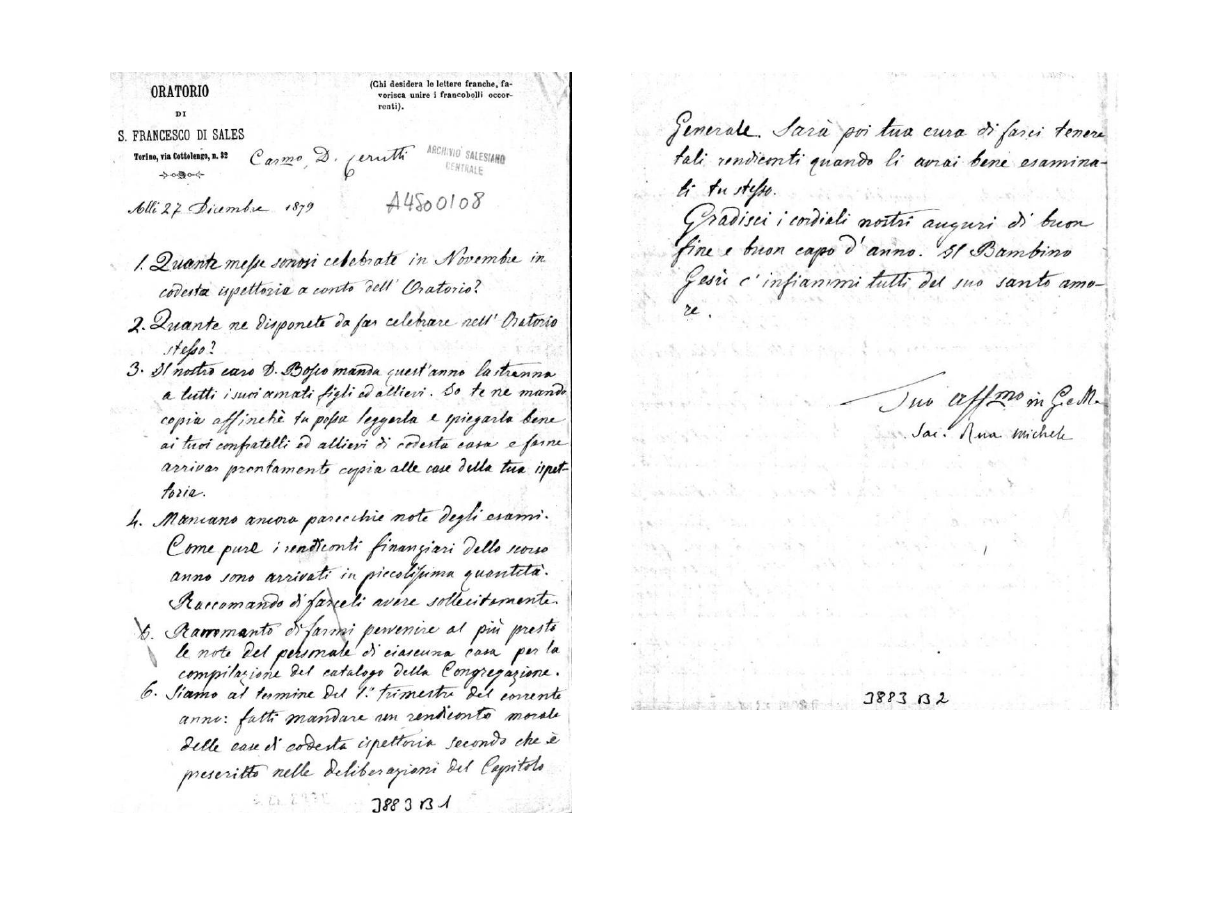 ORATORIO
DI
S. FRANCESCO DI SALES
Torino, via Cottolengo, n. 32
(Chi desidera le lettere franche, fa-
vorisca unire i francobolli occor-
renti).
Carmo D. Cerutti
ARCHIVIO SALESIANO
CENTRALE
A4500108
Alli 27 Dicembre 1879
1. Quante messe sonosi celebrate in Novembre in
codesta ispettoria a conto dell' Oratorio?
2. Quante ne disponete da far celebrare nell' Oratorio
stesso?
3. Il nostro caro D. Bosco manda quest'anno la strenna
a tutti i suoi amati figli ed allievi. Io te ne mando
copia affinchè tu possa leggerla e spiegarla bene
ai tuoi confratelli ed allievi di codesta casa e farne
arrivar prontamente copia alle case della tua ispet-
toria.
4. Mancano ancora parecchie note degli esami.
Come pure i rendiconti finanziari dello scorso
anno sono arrivati in piccolissima quantità.
Raccomando di farceli avere sollecitamente.
5. Raccomanto di farmi pervenire al più presto
le note del personale di ciascuna casa per la
compilazione del catalogo della Congregazione.
6. Siamo al termine del 1° trimestre del corrente
anno: fatti mandare un rendiconto morale
delle case di codesta ispettoria secondo che è
prescritto nelle deliberazioni del Capitolo
3883 B 1
Generale. Sarà poi tua cura di farci tenere
tali rendiconti quando li avrai bene esamina-
ti tu stesso.
Gradisci i cordiali nostri auguri di buon
fine e buon capo d' anno. Il Bambino
Gesù c' infiammi tutti del suo santo amo-
re.
Tuo affmo in G. e M.
Sac. Rua Michele
3883 B 2